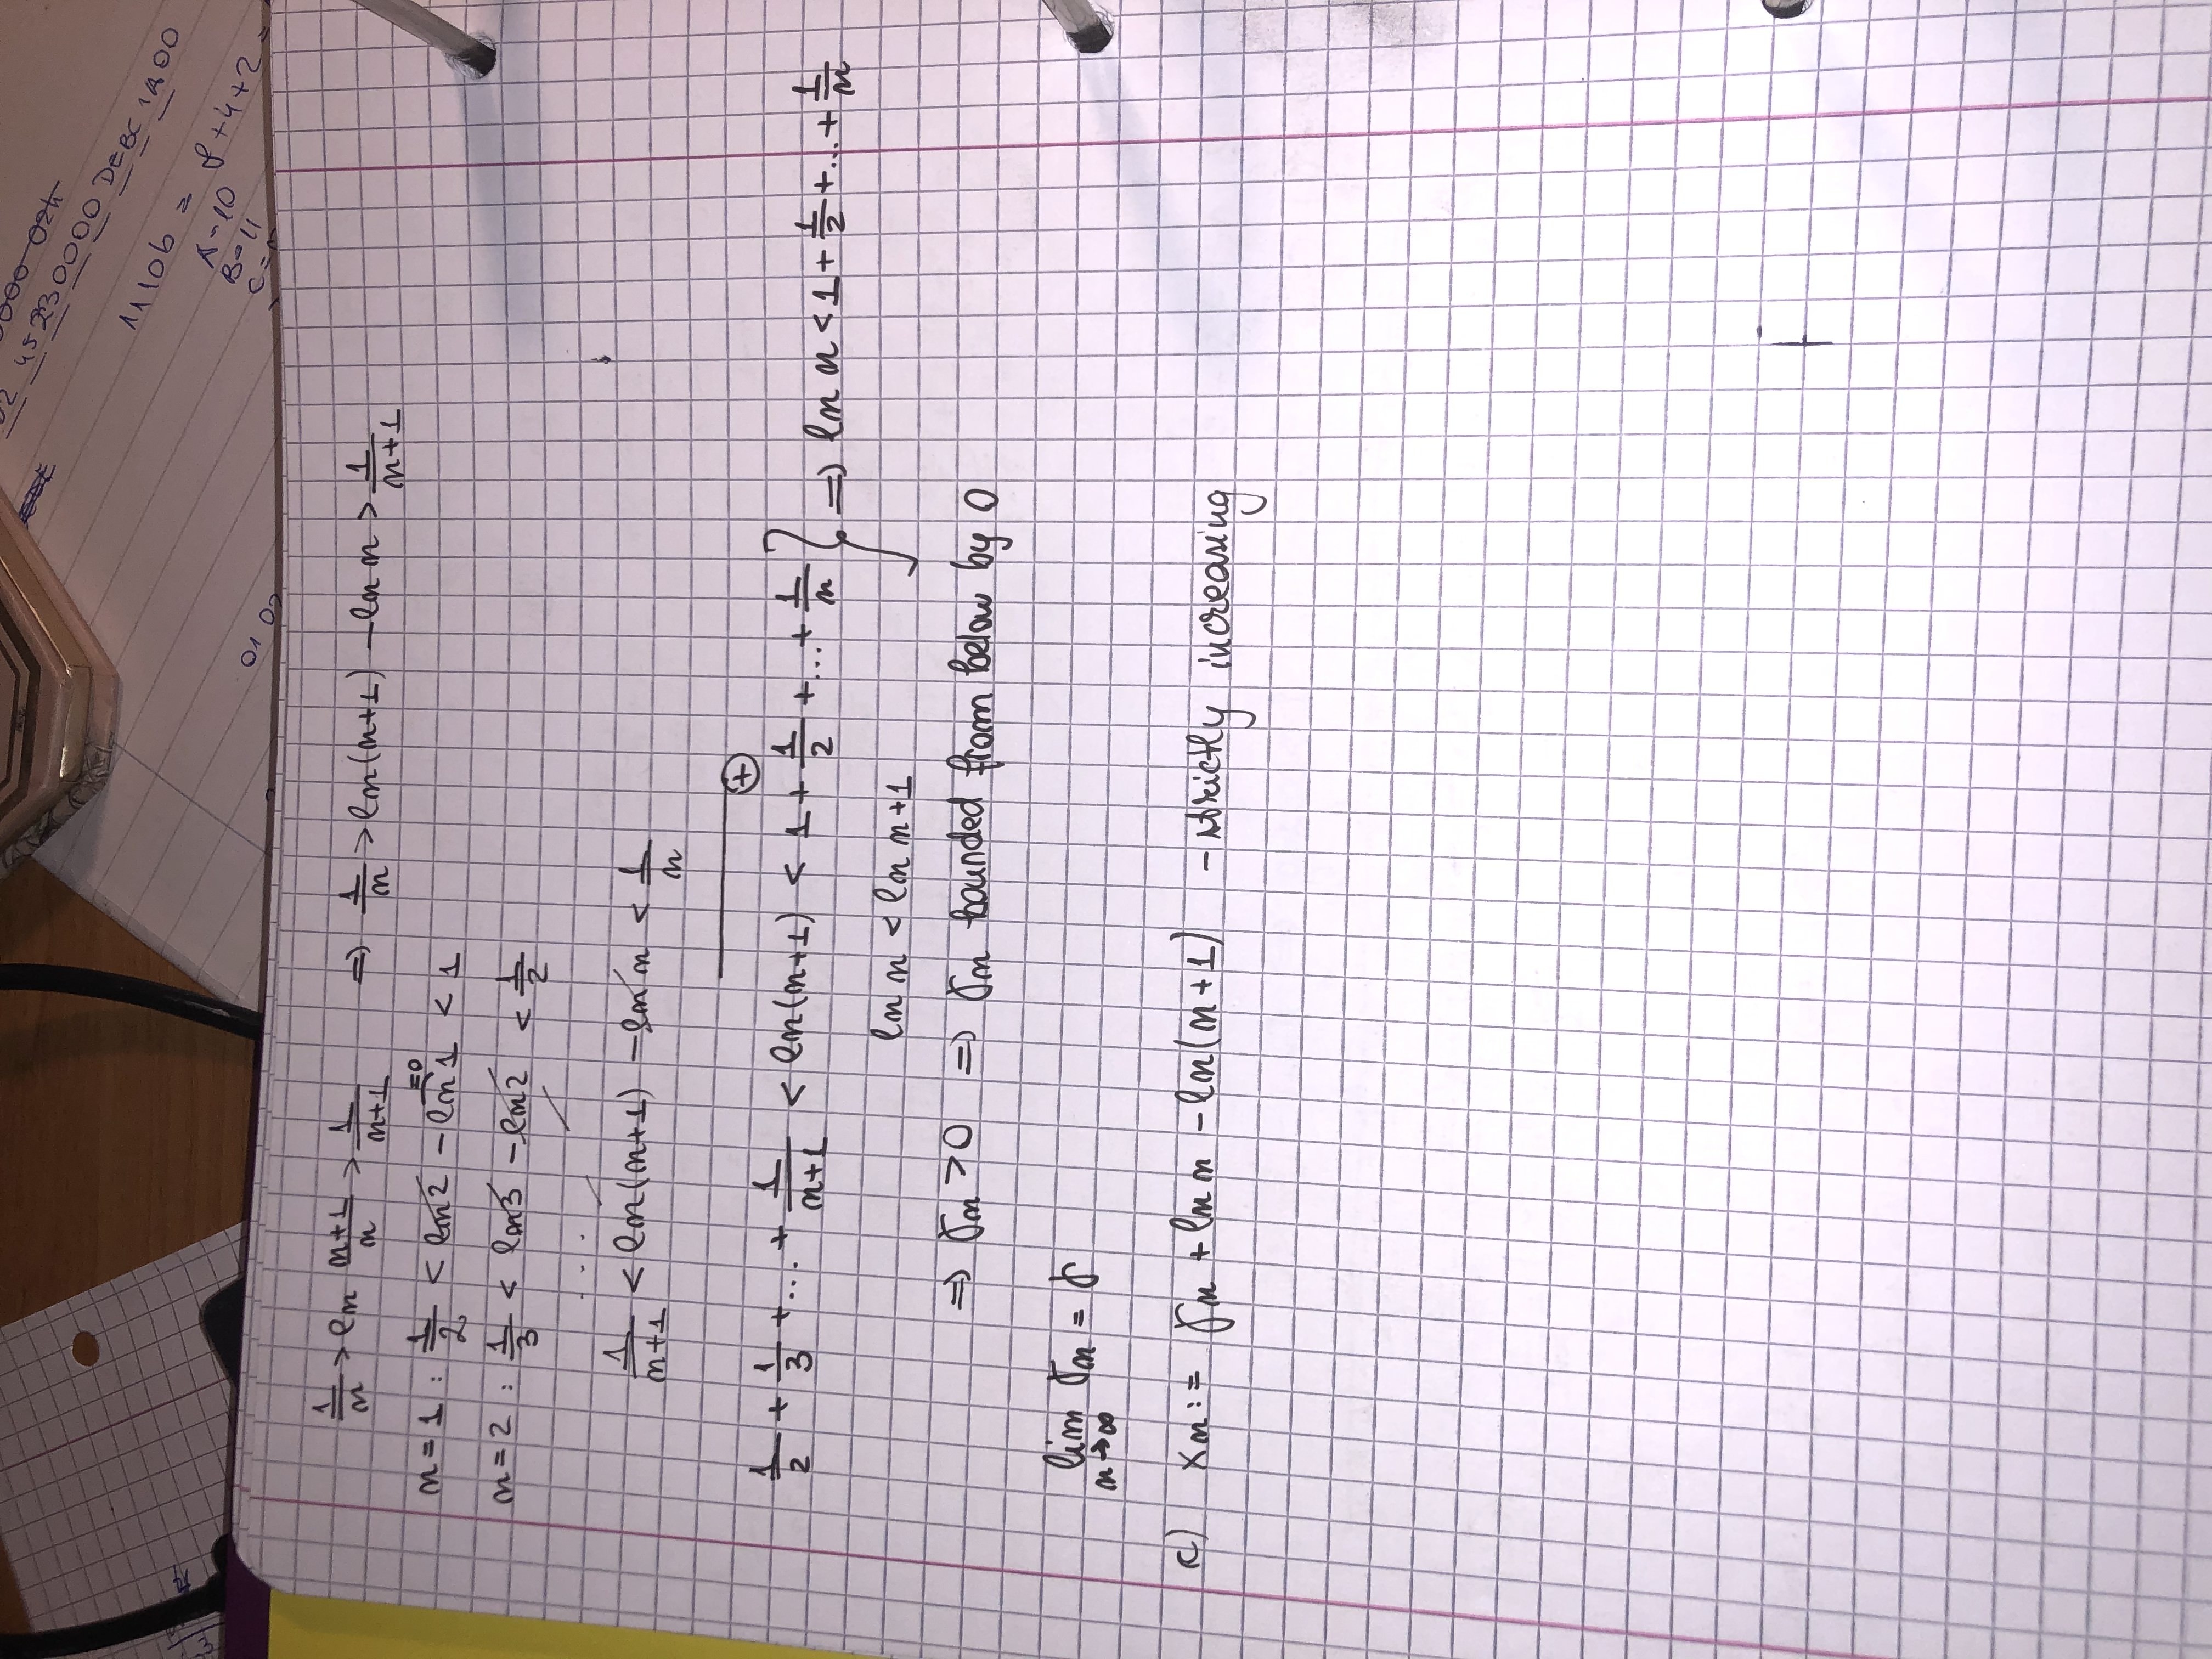 45230000 DEBC 1A00
1110b = 8+4+2=
A-10
B=11
01 02
1/n > ln (n+1)/n > 1/(n+1) => 1/n > ln(n+1) - ln n > 1/(n+1)
n=1 : 1/2 < ln2 - ln1 < 1
=0
n=2 : 1/3 < ln3 - ln2 < 1/2
...
1/(n+1) < ln(n+1) - ln n < 1/n
+
1/2 + 1/3 + ... + 1/(n+1) < ln(n+1) < 1 + 1/2 + ... + 1/n } => ln n < 1 + 1/2 + ... + 1/n
ln n < ln n+1
=> γn > 0 => γn bounded from below by 0
lim γn = γ
n→∞
c) xn := γn + ln n - ln(n+1) - strictly increasing